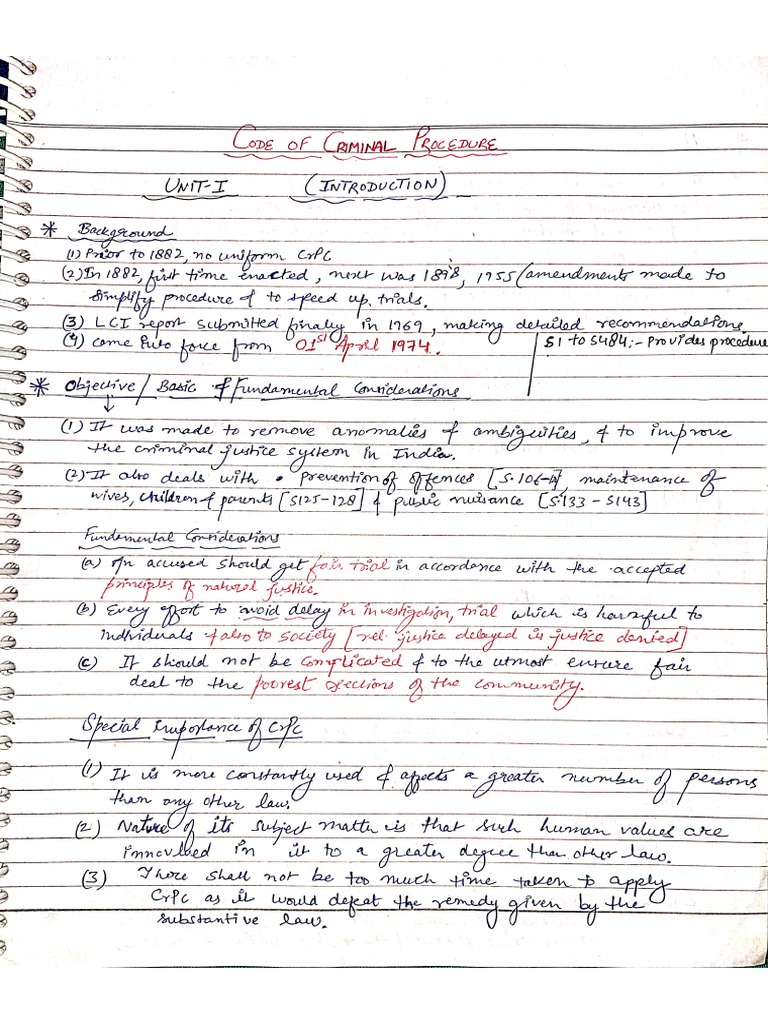 CODE OF CRIMINAL PROCEDURE
UNIT-I (INTRODUCTION)
* Background
(1) Prior to 1882, no uniform CrPC
(2) In 1882, first time enacted, next was 1898, 1955 (amendments made to
simplify procedure & to speed up trials.
(3) LCI report submitted finally in 1969, making detailed recommendations.
(4) Came into force from 01st April 1974.
S1 to S484:- Provides procedure
* Objective/ Basic & Fundamental Considerations
(1) It was made to remove anomalies & ambiguities, & to improve
the criminal justice system in India.
(2) It also deals with • prevention of offences [S.106-], maintenance of
wives, children & parents [S125-128] & public nuisance [S.133 - S143]
Fundamental Considerations
(a) An accused should get fair trial in accordance with the accepted
principles of natural justice.
(b) Every effort to avoid delay in investigation, trial which is harmful to
individuals & also to society [rel. justice delayed is justice denied]
(c) It should not be complicated & to the utmost ensure fair
deal to the poorest sections of the community.
Special importance of CrPC
(1) It is more constantly used & affects a greater number of persons
than any other law.
(2) Nature of its subject matter is that such human values are
innovlved in it to a greater degree than other law.
(3) There shall not be too much time taken to apply
CrPC as it would defeat the remedy given by the
substantive law.